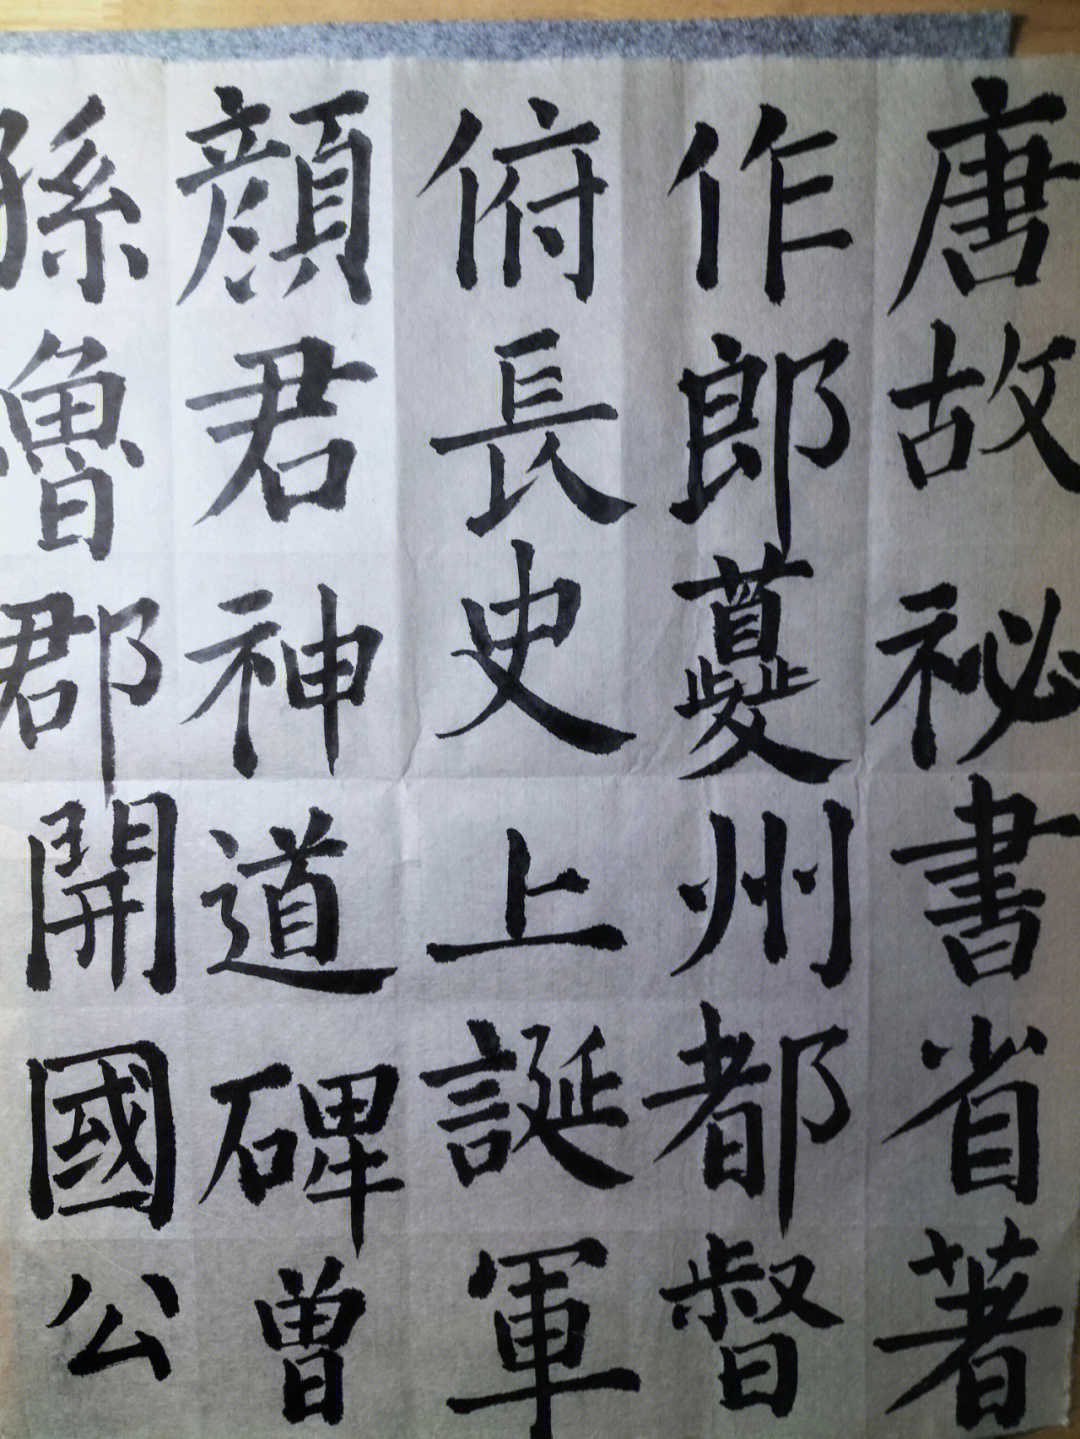 唐故祕書省著
作郎夔州都督
俯長史上誕軍
顏君神道碑曾
孫魯郡開國公